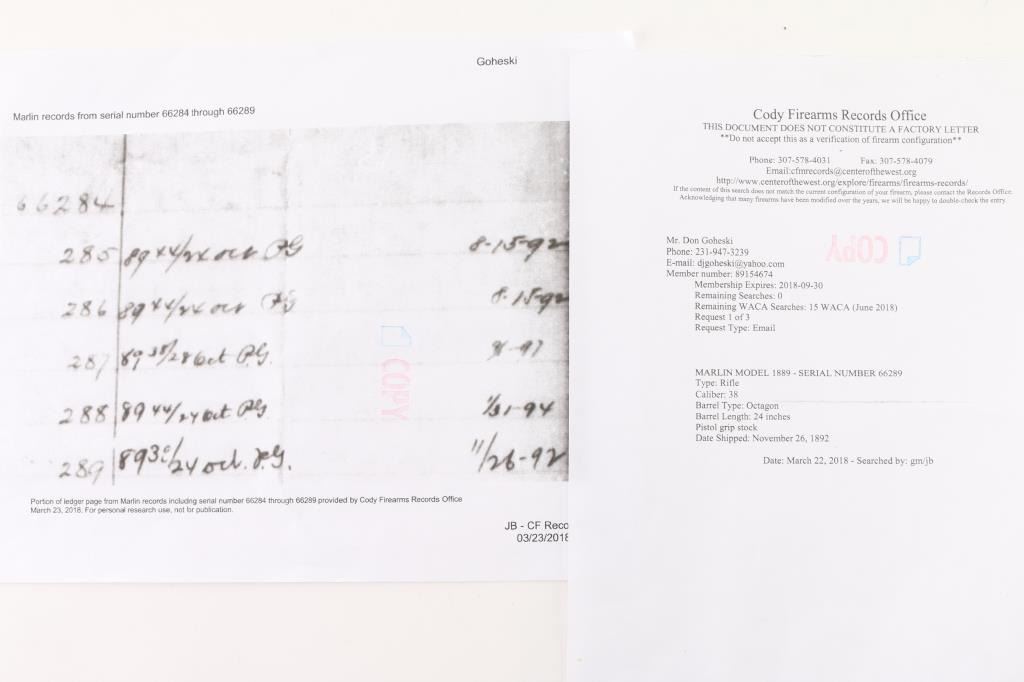 Goheski
Marlin records from serial number 66284 through 66289
66284
285 89 44/24 oct P.G 8-15-92
286 89 44/24 oct P.G 8-15-92
287 89 38/28 oct P.G.
288 89 44/24 oct P.G 1/31-94
289 89 38/24 oct. P.G. 11/26-92
COPY
Portion of ledger page from Marlin records including serial number 66284 through 66289 provided by Cody Firearms Records Office
March 23, 2018. For personal research use, not for publication.
JB - CF Reco
03/23/2018
Cody Firearms Records Office
THIS DOCUMENT DOES NOT CONSTITUTE A FACTORY LETTER
**Do not accept this as a verification of firearm configuration**
Phone: 307-578-4031 Fax: 307-578-4079
Email:cfmrecords@centerofthewest.org
http://www.centerofthewest.org/explore/firearms/firearms-records/
If the content of this search does not match the current configuration of your firearm, please contact the Records Office.
Acknowledging that many firearms have been modified over the years, we will be happy to double-check the entry.
COPY
Mr. Don Goheski
Phone: 231-947-3239
E-mail: djgoheski@yahoo.com
Member number: 89154674
Membership Expires: 2018-09-30
Remaining Searches: 0
Remaining WACA Searches: 15 WACA (June 2018)
Request 1 of 3
Request Type: Email
MARLIN MODEL 1889 - SERIAL NUMBER 66289
Type: Rifle
Caliber: 38
Barrel Type: Octagon
Barrel Length: 24 inches
Pistol grip stock
Date Shipped: November 26, 1892
Date: March 22, 2018 - Searched by: gm/jb